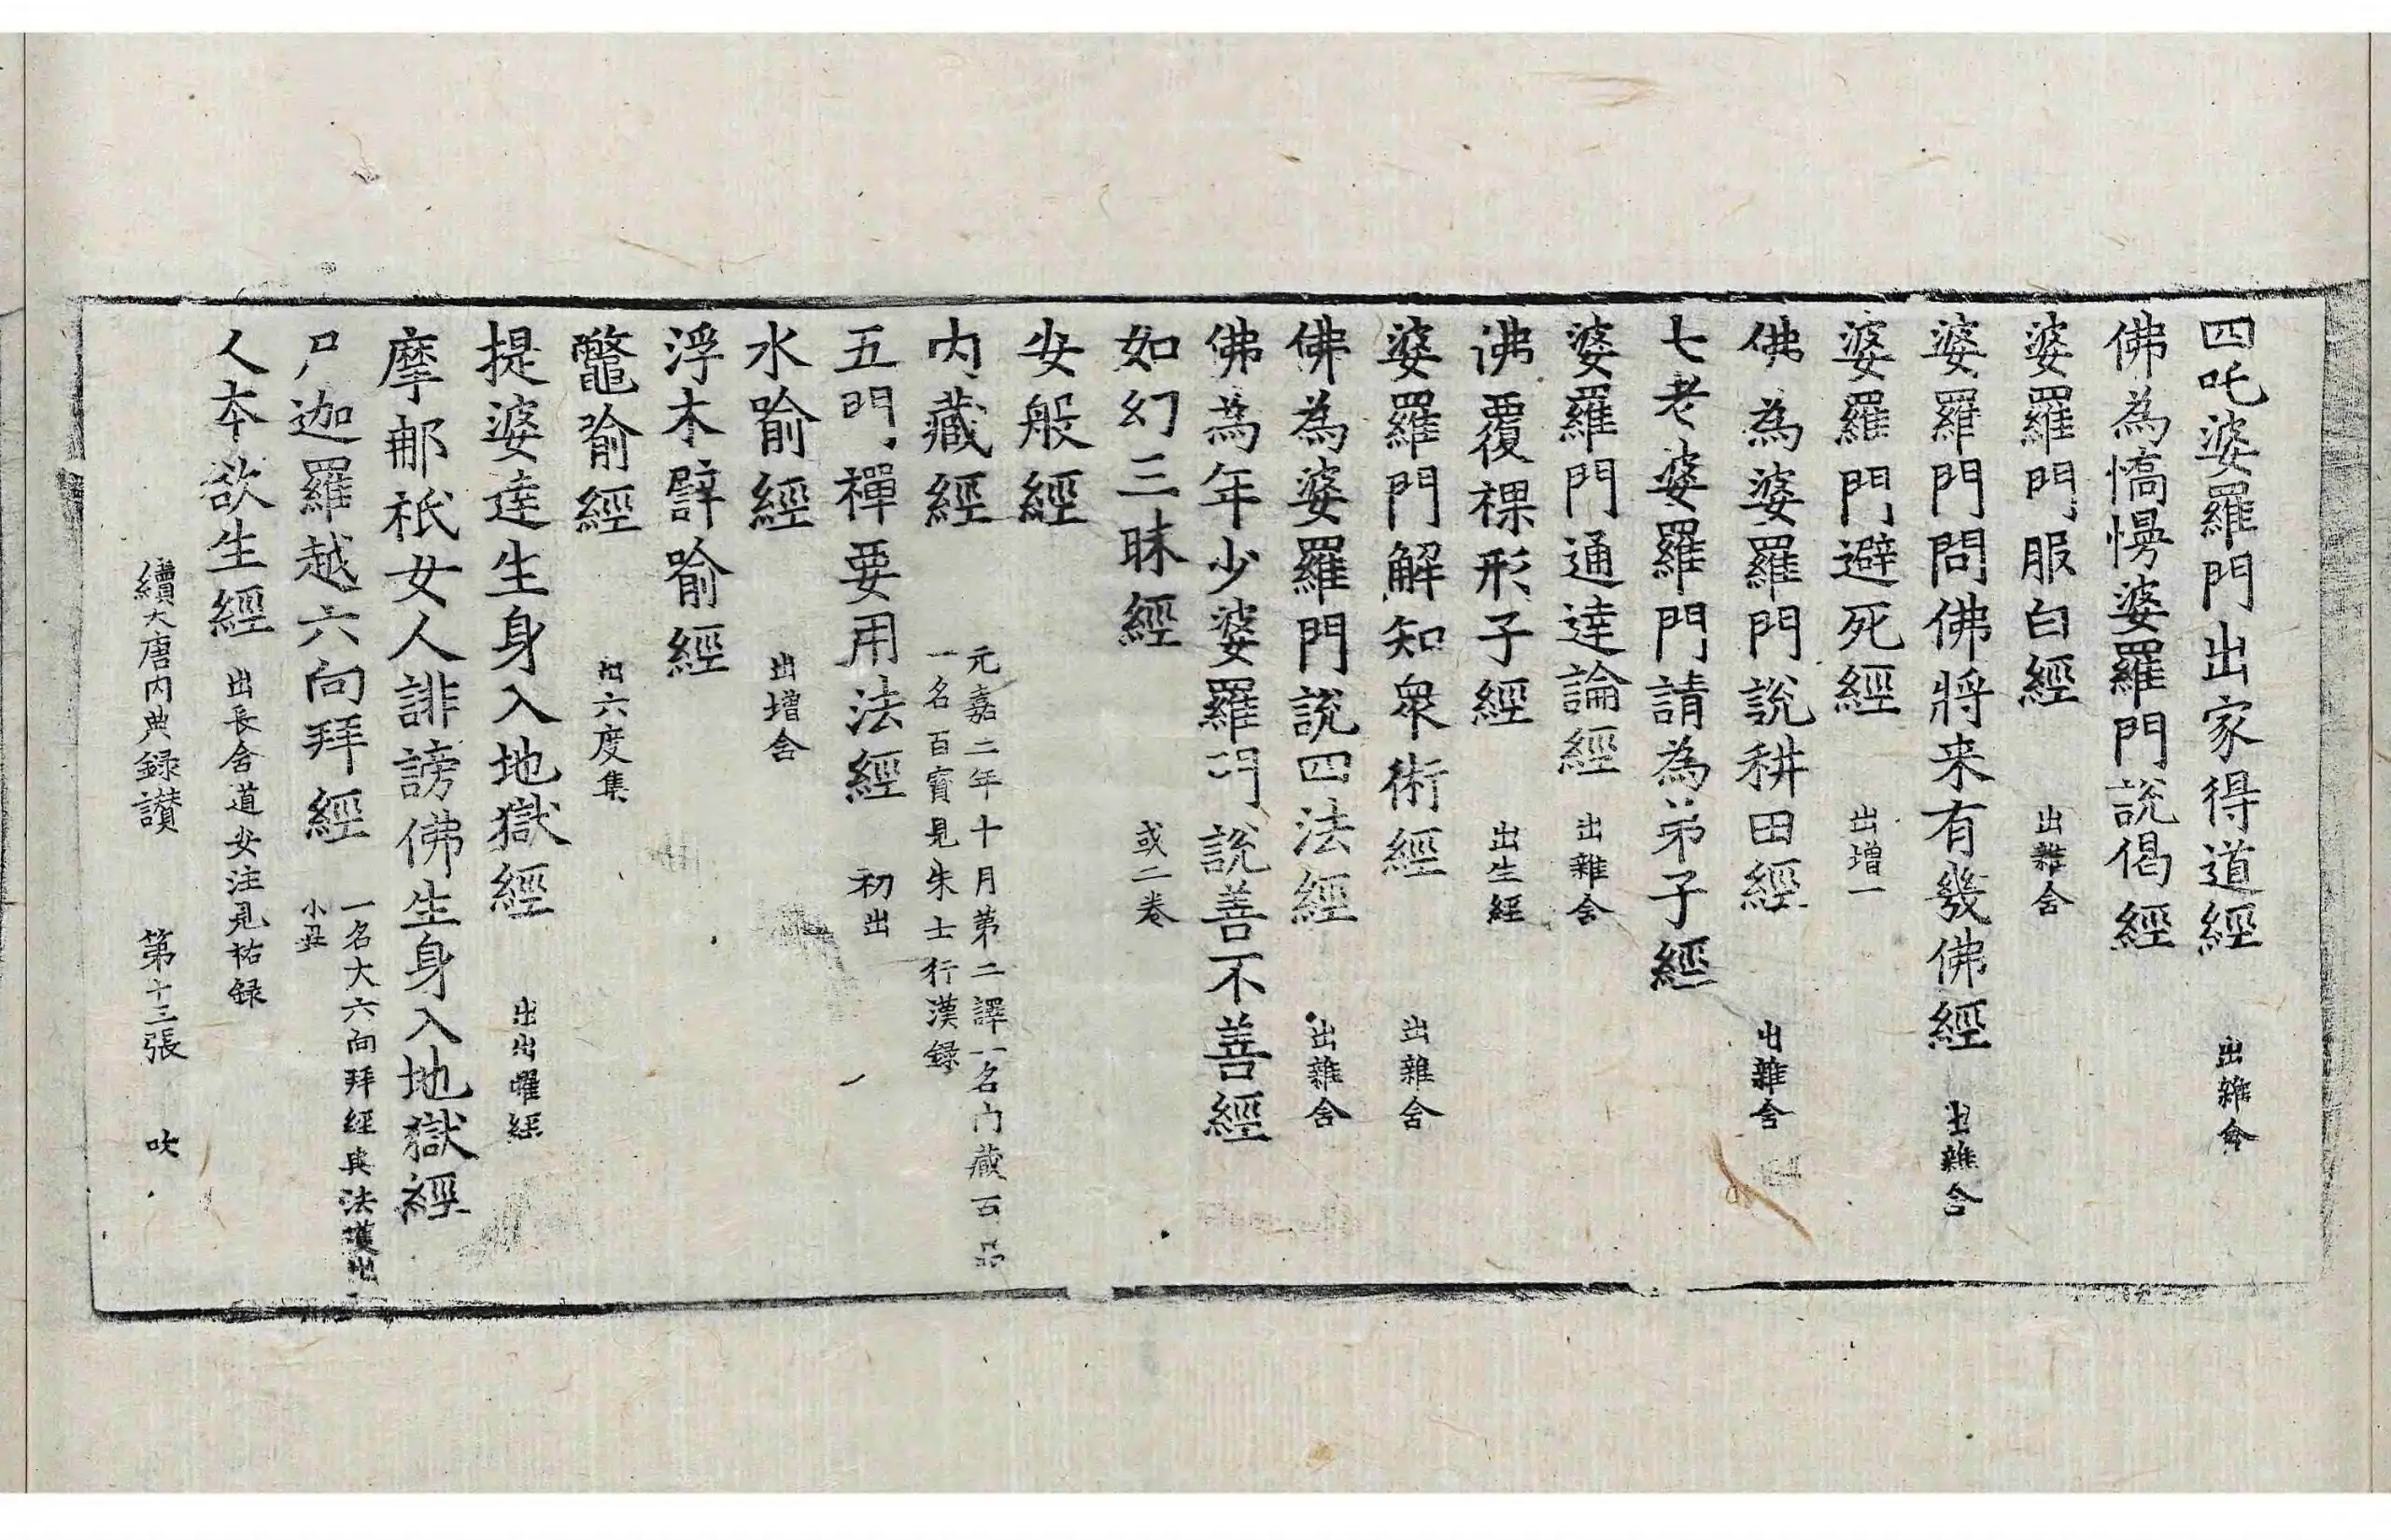 四吒婆羅門出家得道經 出雜含
佛為憍慢婆羅門說偈經
婆羅門服白經 出雜含
婆羅門問佛將来有幾佛經 出雜含
婆羅門避死經 出增一
佛為婆羅門說耕田經 出雜含
七老婆羅門請為弟子經
婆羅門通達論經 出雜含
佛覆裸形子經 出生經
婆羅門解知衆術經 出雜含
佛為婆羅門說四法經 出雜含
佛為年少婆羅門說善不善經
如幻三昧經 或二卷
安般經
内藏經 元嘉二年十月第二譯一名内藏百品
一名百寶見朱士行漢録
五門禪要用法經 初出
水喻經 出增含
浮木譬喻經
鼈喻經 出六度集
提婆達生身入地獄經 出出曜經
摩郍祇女人誹謗佛生身入地獄經
尸迦羅越六向拜經 一名大六向拜經與法護出
小異
人本欲生經 出長含道安注見祐録
續大唐内典録讃 第十三張 吹